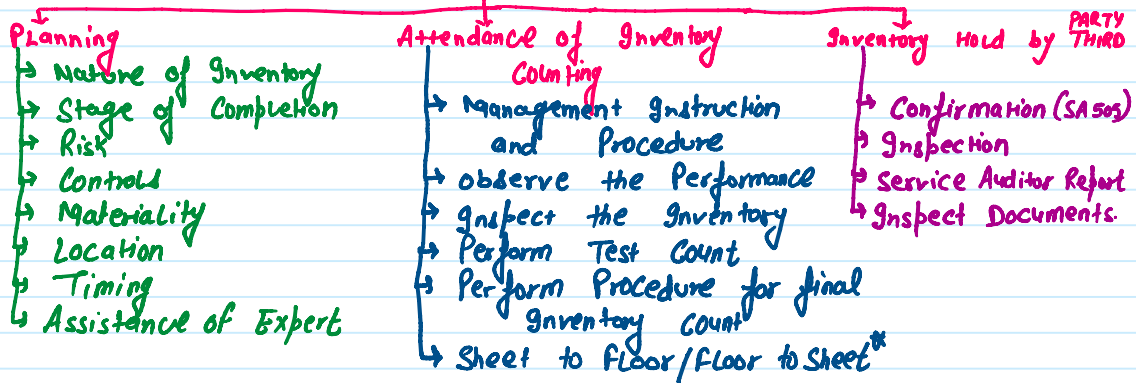 Planning
Nature of Inventory
Stage of Completion
Risk
Controls
Materiality
Location
Timing
Assistance of Expert
Attendance of Inventory
Counting
Management Instruction
and Procedure
observe the Performance
Inspect the Inventory
Perform Test Count
Perform Procedure for final
Inventory Count
Sheet to Floor/Floor to Sheet*
Inventory Hold by THIRD PARTY
Confirmation (SA 505)
Inspection
Service Auditor Report
Inspect Documents.